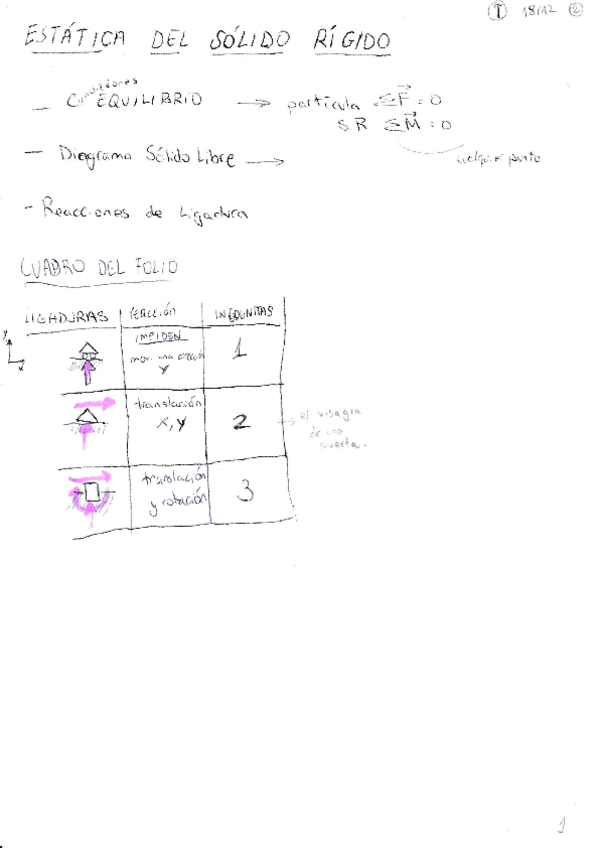 I 18/12 2
ESTÁTICA DEL SÓLIDO RÍGIDO
— Condiciones EQUILIBRIO → partícula ΣF⃗ = 0
SR ΣM⃗ = 0
cualquier punto
— Diagrama Sólido Libre →
- Reacciones de Ligadura
CUADRO DEL FOLIO
LIGADURAS REACCIÓN INCÓGNITAS
IMPIDEN
mov. una dirección
Y
1
y
x
translación
X, Y
2
→ ej visagra
de una
puerta.
translación
y rotación
3
1